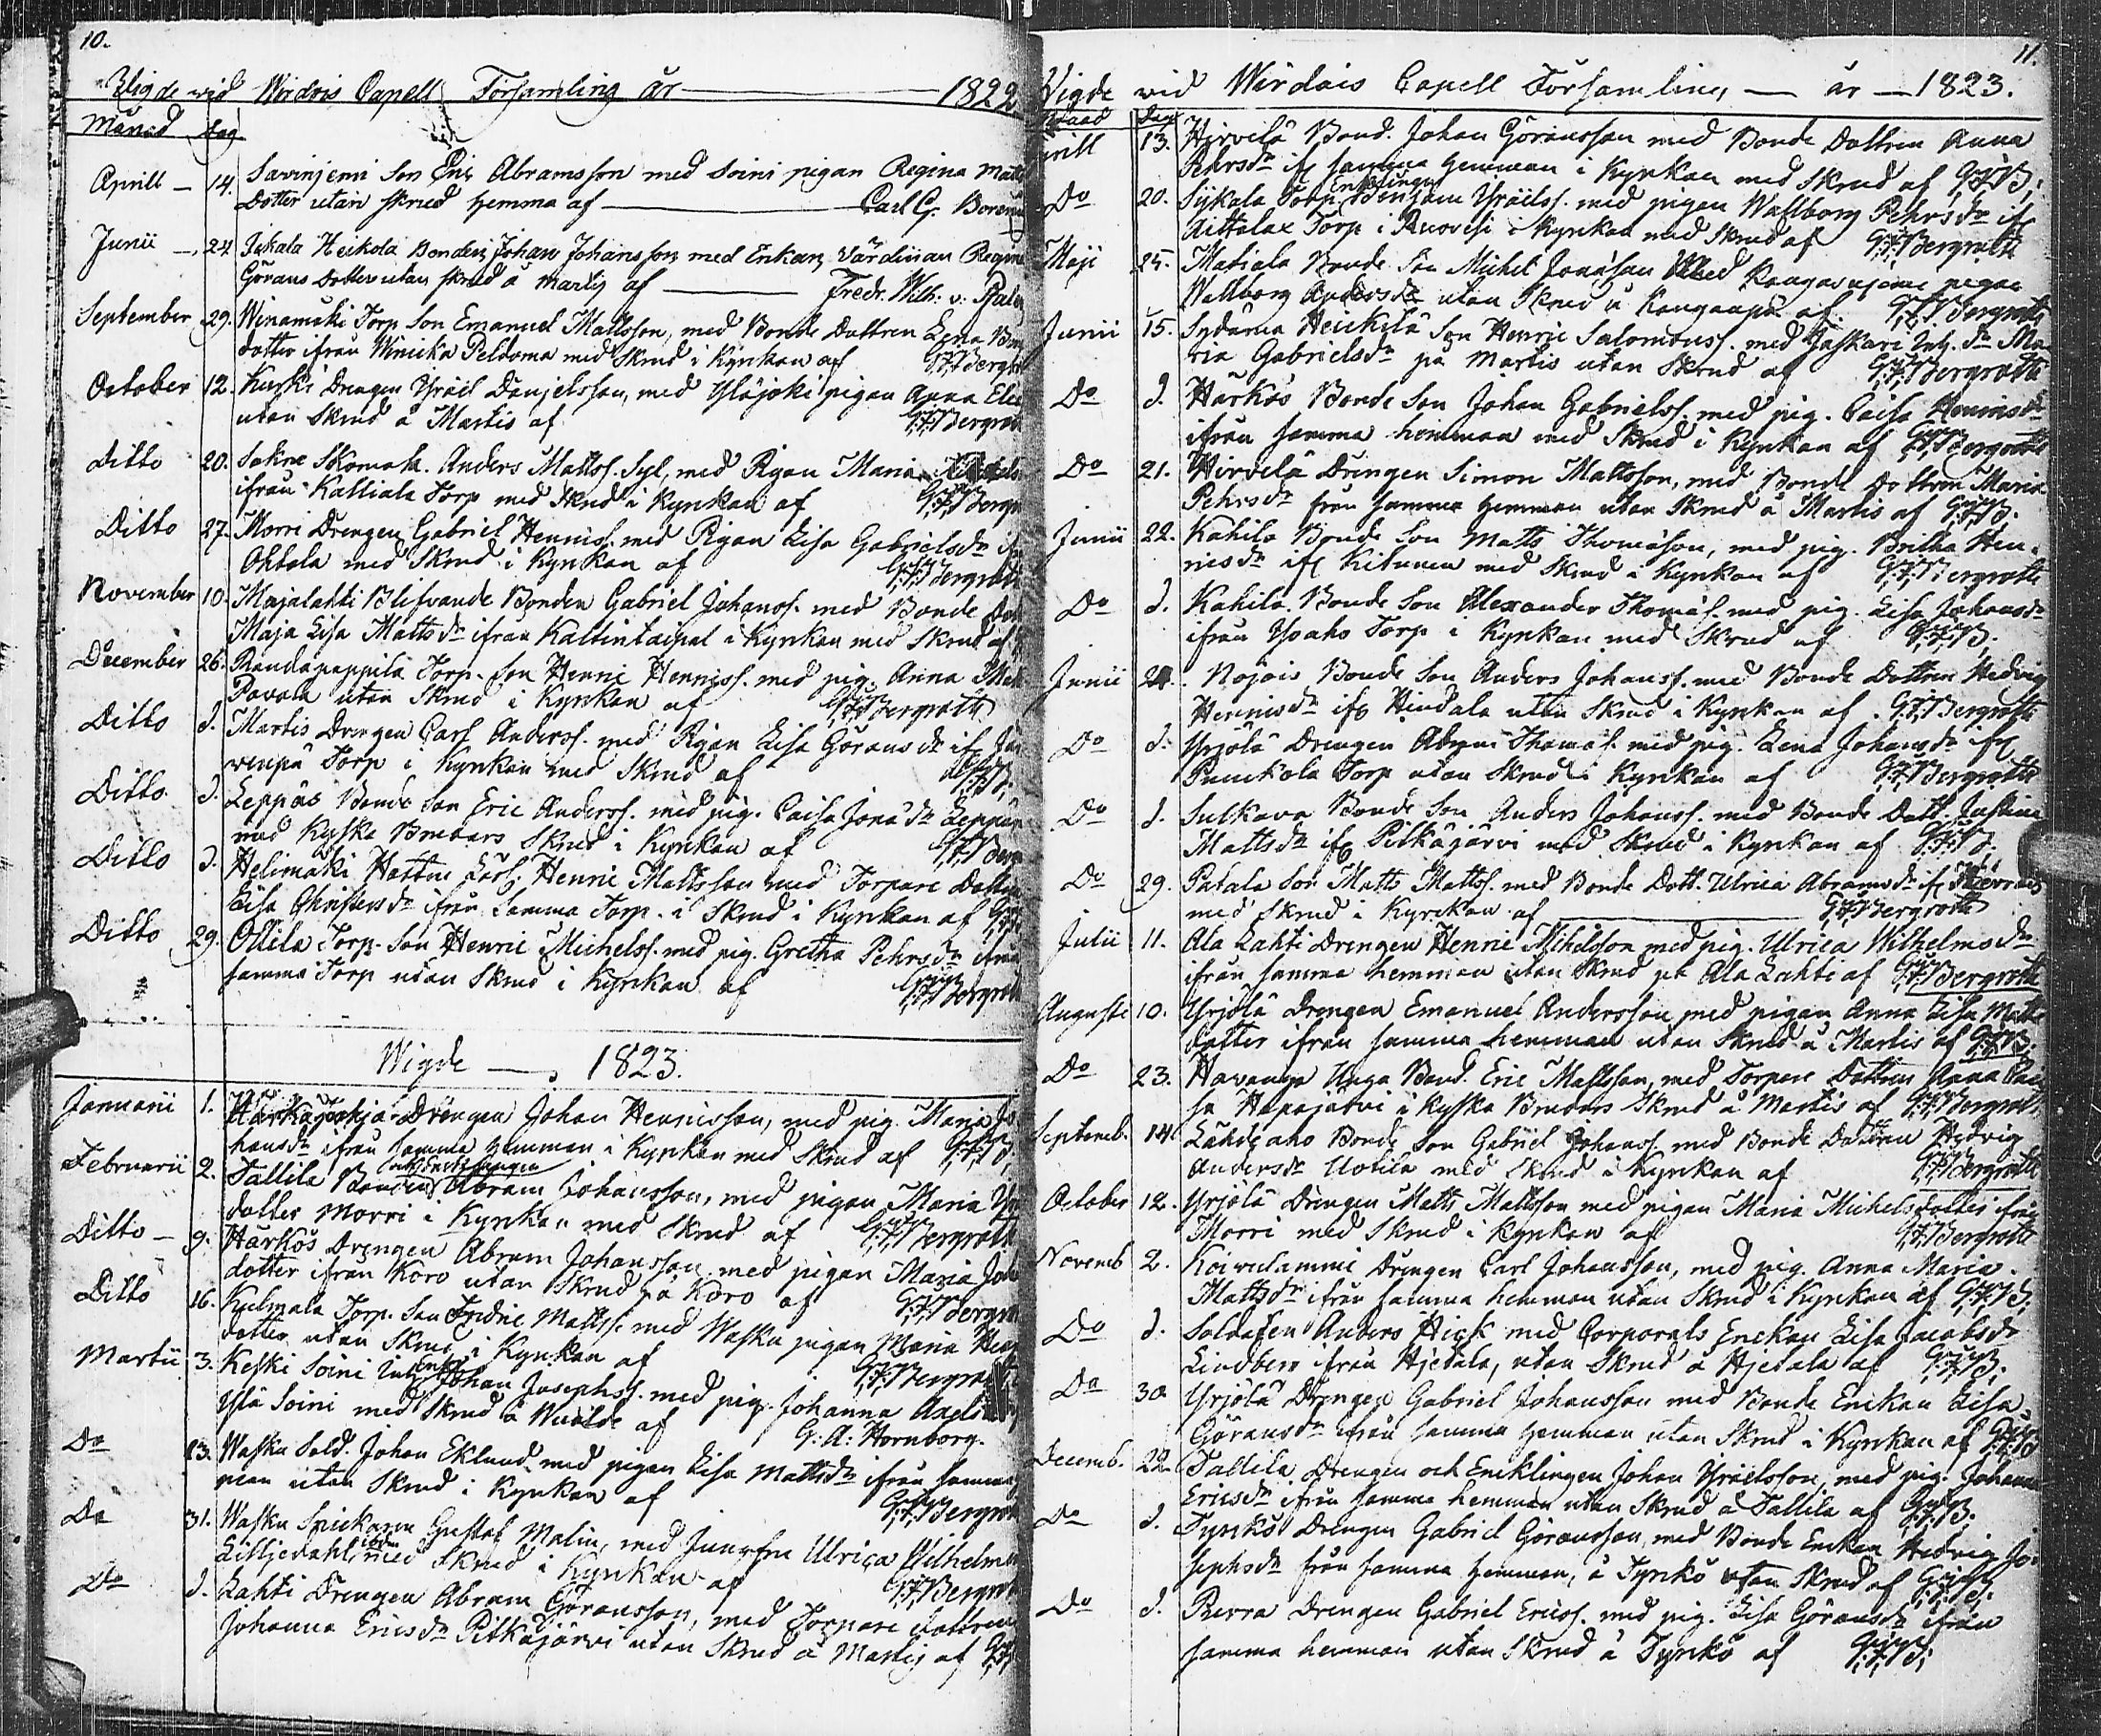 10.
Wigde vid Wirdois Capell Församling år 1822
Månad dag
Aprill 14. Savinjemi Son Eric Abramsson med Soini pigan Regina Matts
Dotter utan skrud hemma af Carl G. Boreni
Junii 24. Jukala Heikola Bonden Johan Johansson med Enkan Värdinnan Regina
Görans Dotter utan skrud å Martis af Fredr. Wilh: v: Pfaler
September 29. Winamäki Torp Son Emanuel Mattsson, med Bonde Dottren Lena
dotter ifrån Winicka Peldoma med Skrud i Kyrkan af G.F. Bergroth
October 12. Kurki Drengen Ysräel Danjelsson, med Yläjoki pigan Anna
utan Skrud å Martis af G.F. Bergroth
Ditto 20. Sokne Skomak. Anders Mattss. Syl, med Pigan Maria
ifrån Kalliala Torp med Skrud i Kyrkan af G.F. Bergr
Ditto 27. Morri Drengen Gabriel Henriss. med Pigan Lisa Gabrielsdr
Ohtola med Skrud i Kyrkan af G.F. Bergroth
November 10. Majalahti Blifvande Bonden Gabriel Johanss. med Bonde Dott
Maja Lisa Mattsdr ifrån Kaltintaipal i Kyrkan med Skrud af
December 26. Randapappila Torp. Son Henric Henrics. med pig. Anna
Pavola utan Skrud i Kyrkan af G.F. Bergroth
Ditto d. Martis Drengen Carl Anderss. med Pigan Lisa Göransdr ifr
venpä Torp i Kyrkan med Skrud af G.F.B.
Ditto d. Leppäs Bonde Son Eric Anderss. med pig. Caisa Jonä dr Leppän
med Kyska Brudars Skrud i Kyrkan af G.F. Berg
Ditto d. Helimäki Karl. Henric Mattsson med Torpare Dottren
Lisa Christersdr ifrån Samma Torp. i Skrud i Kyrkan af G.F.
Ditto 29. Ollila Torp. Son Henric Michelss. med pig. Gretha Pehrsdr ifrån
samma Torp utan Skrud i Kyrkan af G.F. Bergroth
Wigde 1823.
Januarii 1. Drengen Johan Henricsson, med pig. Maria Jo
hansdr ifrån samma hemman i Kyrkan med Skrud af G.F.B.
Februarii 2. Tallila Bonden Abram Johansson, med pigan Maria
dotter Morri i Kyrkan med Skrud af G.F. Bergroth
Ditto 9. Härkös Drengen Abram Johansson med pigan Maria Joh
dotter ifrån Koro utan Skrud på Koro af G.F. Bergro
Ditto 16. Kielmala Torp. Son Mattss. med Wasku pigan Maria Hen
dotter utan Skrud i Kyrkan af G.F. Bergrot
Martii 3. Keski Soini Inh. Enkl. Johan Josephss. med pig. Johanna Axels
Ylä Soini med Skrud å af G: A: Hornborg.
Do 23. Wasku Sold. Johan Eklund med pigan Lisa Mattsdr ifrån samma
man utan Skrud i Kyrkan af G.F. Bergrot
Do 31. Wasku Gustaf Malin, med Jungfru Ulrica Wilhelmina
Lilljedahl, med Skrud i Kyrkan af G.F. Bergrot
Do d. Lahti Drengen Abram Göransson, med Torpare dottren
Johanna Ericsdr Pitkäjärvi utan Skrud å Martis af G.F.
11.
Vigde vid Wirdois Capell Församling år 1823.
Månad Dag
Aprill 13. Hirvelä Bond. Johan Göransson med Bonde Dottren Anna
Pehrsdr ifr samma hemman i Kyrkan med Skrud af G.F.B.
Do 20. Sykala Torp. Enklingen Benjam Ysräelss. med pigan Wallborg Pehrsdr ifr
Aittolax Torp i Ruovesi i Kyrkan med Skrud af G.F. Bergroth
Maji 25. Matiala Bonde Son Michel Jonäson Med pigan
Wallborg Andersdr utan Skrud å af. G.F. Bergroth
Junii 15. Heickelä Son Henric Salomonss. med Jaskari Inh. dr Ma
ria Gabrielsdr på Martis utan Skrud af G.F. Bergroth
Do d. Härkös Bonde Son Johan Gabrielss. med pig. Caisa Henricsdr
ifrån samma hemman med Skrud i Kyrkan af G.F. Bergroth
Do 21. Hirvelä Drengen Simon Mattsson, med Bonde Dottren Maria
Pehrsdr från samma hemman utan Skrud å Martis af G.F.B.
Junii 22. Kahila Bonde Son Matts Thomäson, med pig. Britha Hen-
ricsdr ifr Kitunen med Skrud i Kyrkan af G.F. Bergroth
Do d. Kahila Bonde Son Alexander Thomäs. med pig. Lisa Johansdr
ifrån Ysoaho Torp i Kyrkan med Skrud af G.F.B.
Junii 24. Nojois Bonde Son Anders Johanss. med Bonde Dottren Hedvig
Henricsdr ifr Hindala utan Skrud i Kyrkan af G.F. Bergroth
Do d. Yrjölä Drengen Abram Thomäs. med pig. Lena Johansdr ifr
Torp utan Skrud i Kyrkan af G.F. Bergroth
Do d. Sulkava Bonde Son Anders Johanss. med Bonde Dott. Justina
Mattsdr ifr Pitkäjärvi med Skrud i Kyrkan af G.F.B.
Do 29. Patala Son Matts Mattss. med Bonde Dott. Ulrica Abramsdr ifr
med Skrud i Kyrckan af G.F. Bergroth
Julii 11. Ala Lahti Drengen Henric Michelsson med pig. Ulrica Wilhelmsdr
ifrån samma hemman utan Skrud på Ala Lahti af G.F. Bergroth
Augusti 10. Yrjölä Drengen Emanuel Andersson med pigan Anna Lisa Matts
dotter ifrån samma hemman utan Skrud å Martis af G.F.B.
Do 23. Havanga Unga Bond. Eric Mattsson, med Torpare Dottren Anna Cai
sa Hapajärvi i Kyska Brudars Skrud å Martis af G.F. Bergroth
Septemb. 14. Lähdeaho Bonde Son Gabriel Johanss. med Bonde Dottren Hedvig
Andersdr Uotila med Skrud i Kyrkan af G.F. Bergroth
October 12. Yrjölä Drengen Matts Mattsson med pigan Maria Michelsdotter ifrån
Morri med Skrud i Kyrkan af G.F. Bergroth
Novemb 2. Koivulammi Drengen Carl Johansson, med pig. Anna Maria
Mattsdr ifrån samma hemman utan Skrud i Kyrkan af G.F.B.
Do d. Soldaten Anders Hick med Corporals Enckan Lisa Jacobsdr
Lindberg ifrån Hjetala, utan Skrud å Hjetala af G.F.B.
Do 30. Yrjölä Drengen Gabriel Johansson med Bonde Enckan Lisa
Göransdr ifrån samma hemman utan Skrud i Kyrkan af G.F.B.
Decemb. 22. Tallila Drengen och Encklingen Johan Ysräelsson, med pig. Johana
Ericsdr ifrån samma hemman utan Skrud å Tallila af G.F.B.
Do d. Tynkö Drengen Gabriel Göransson, med Bonde Enckan Hedvig Jo-
sephsdr från samma hemman, å Tynkö utan Skrud af G.F.B.
Do d. Drengen Gabriel Ericss. med pig. Lisa Göransdr ifrån
samma hemman utan Skrud å Tynkö af G.F.B.